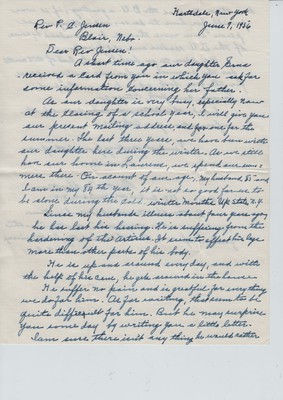 Hartsdale, New York
Rev. P. C. Jensen June 9, 1956
Blair, Nebr.
Dear Rev Jensen!
A short time ago our daughter Erna
received a card from you in which you ask for
some information concerning her father.
As our daughter is very busy, especially now
at the closing of a school year, I will give you
our present mailing address, and for one for the
summer. The last three years, we have been with
our daughter here during the winter. As we still
have our home in Laurens, we spend our sum-
mers there. On account of our age, My husband 85 and
I am in my 84th year, it is not so good for us to
be alone during the cold winter months Up State, N.Y.
Since my husbands illness about four years ago,
he has lost his hearing. He is suffering from the
hardening of the Arteries. It seems to affect his legs
more than other parts of his body.
He is up and around every day, and with
the help of his cane, he gets around in the house.
He suffer no pain and is grateful for everything
we do for him. As for writing, that seems to be
quite difficult for him. But he may surprise
you some day by writing you a little letter.
I am sure there isn't any thing he would rather